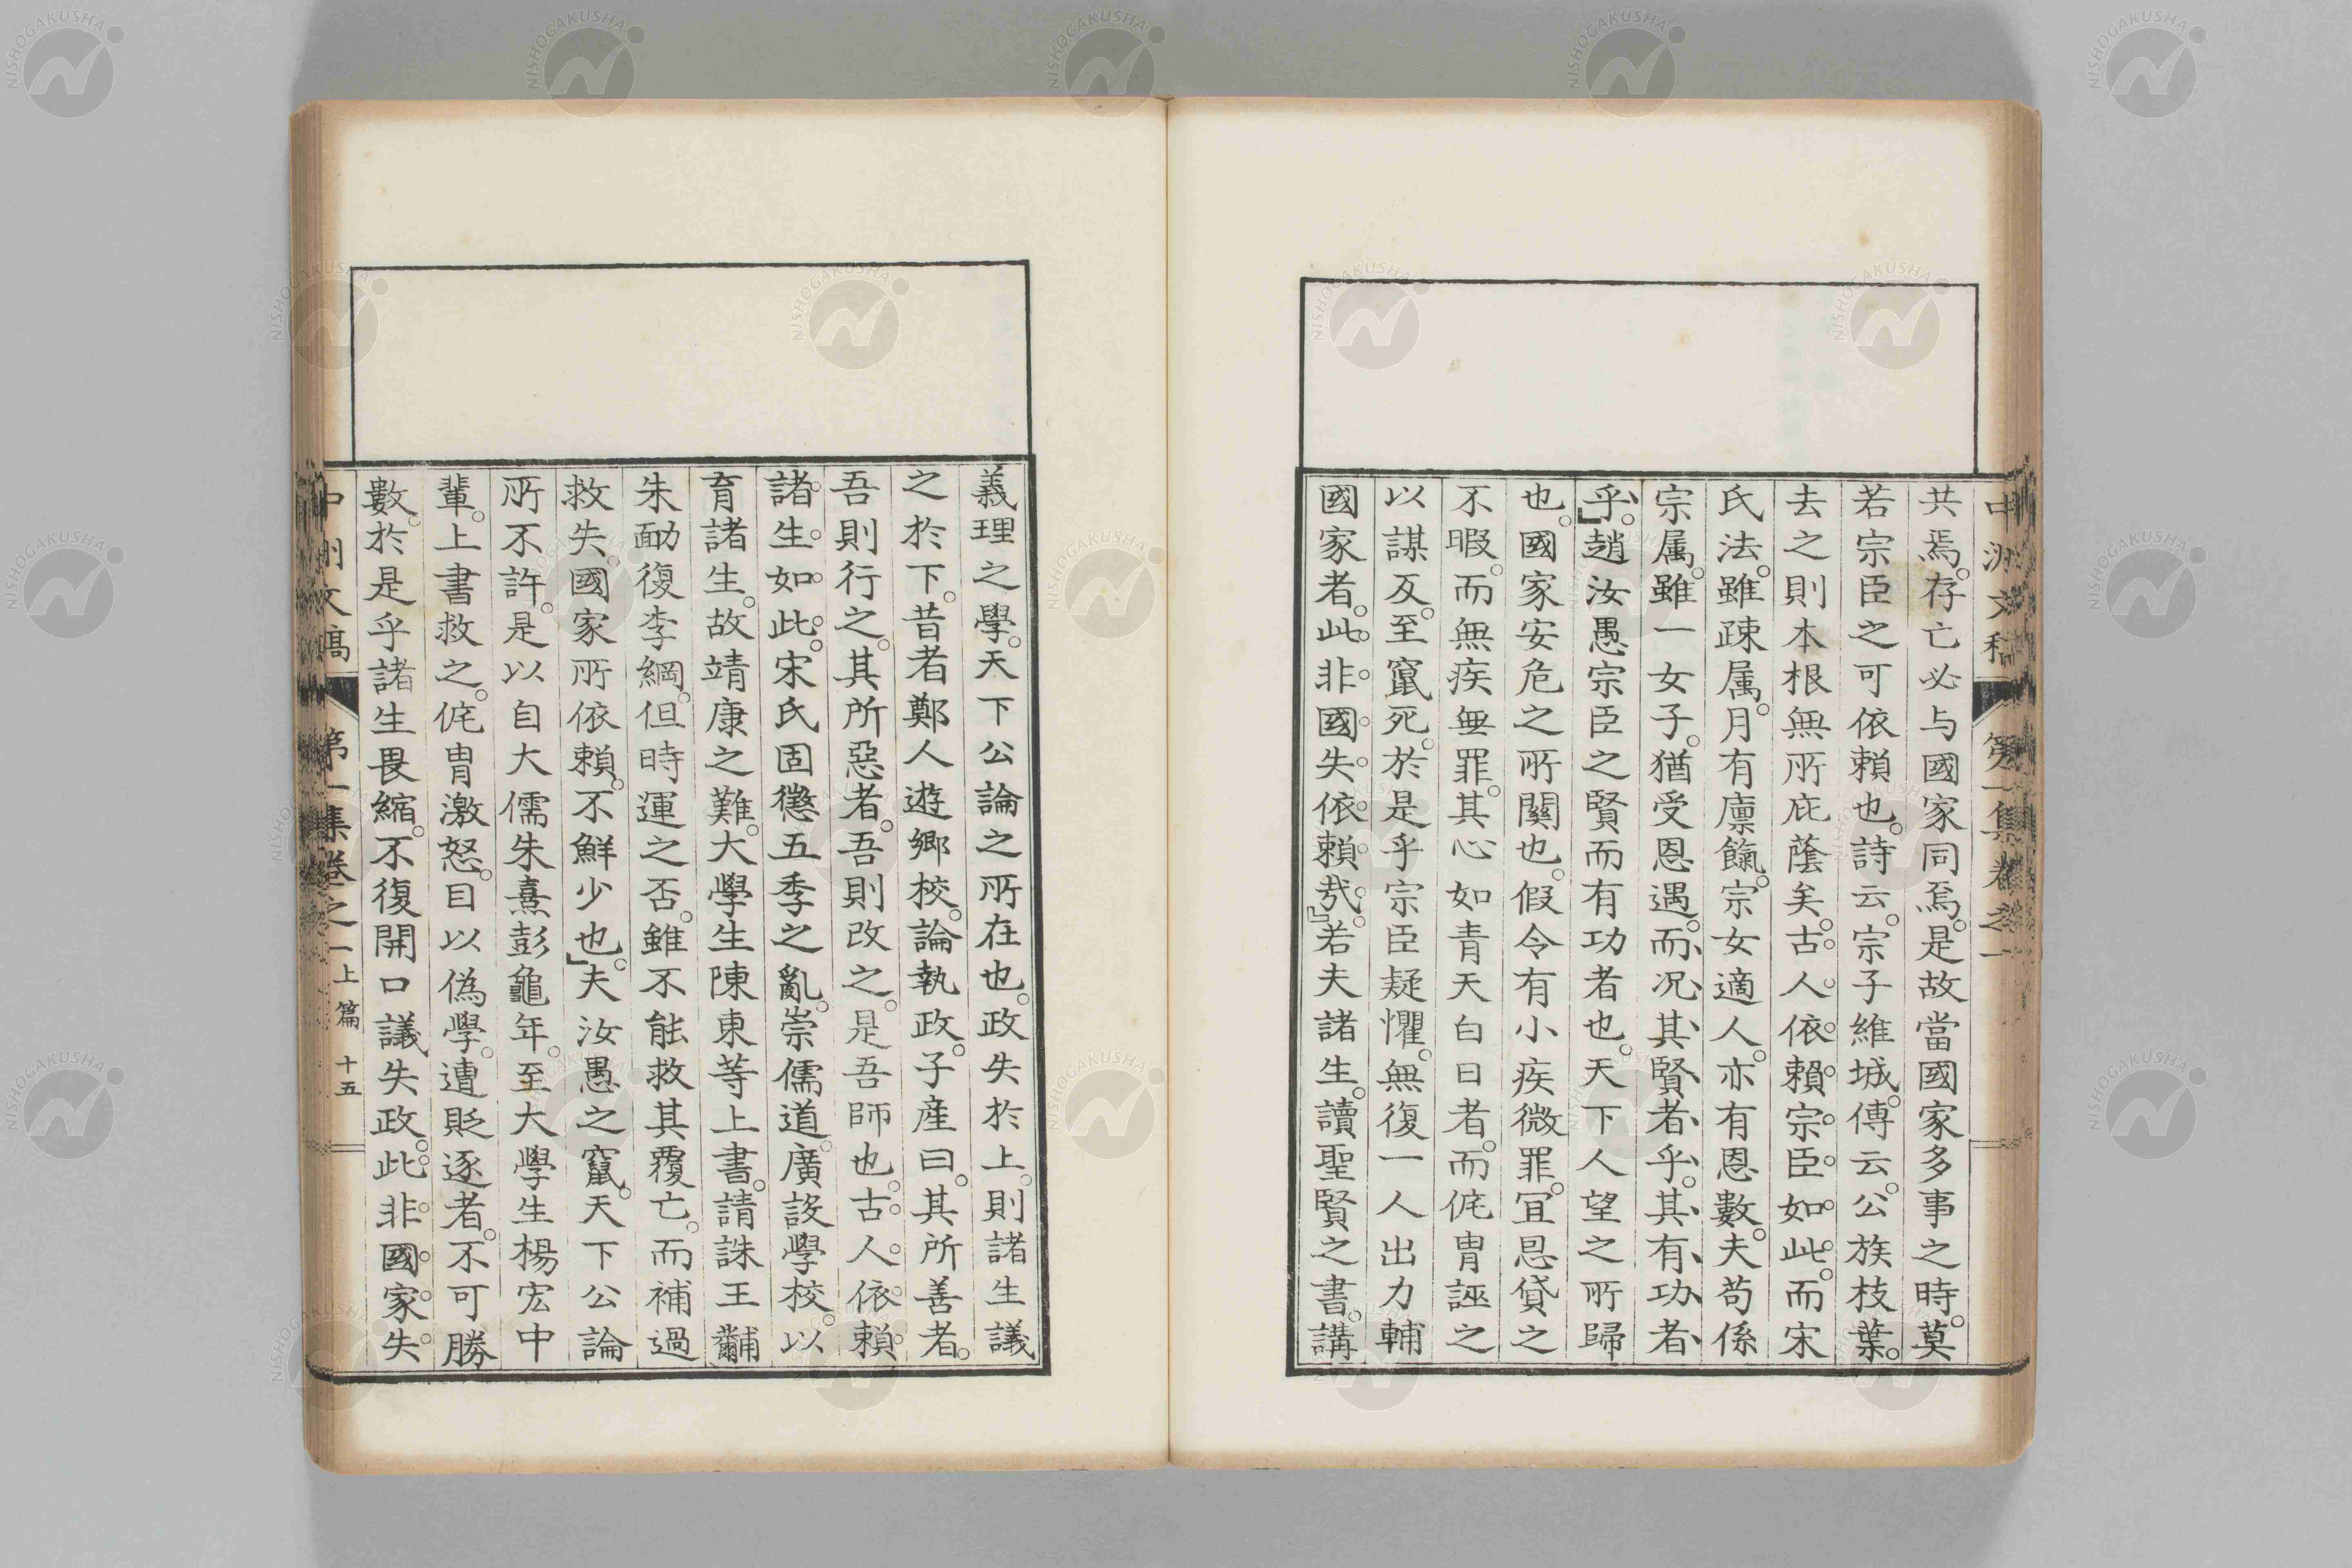 中洲文稿 第一集卷之一
共焉。存亡必与國家同焉。是故當國家多事之時。莫
若宗臣之可依賴也。詩云。宗子維城。傳云。公族枝葉。
去之則本根無所庇蔭矣。古人依賴宗臣如此。而宋
氏法。雖疎属。月有廩餼。宗女適人。亦有恩數。夫苟係
宗属。雖一女子。猶受恩遇。而况其賢者乎。其有功者
乎。」趙汝愚宗臣之賢而有功者也。天下人望之所歸
也。國家安危之所關也。假令有小疾微罪。宜恩貸之
不暇。而無疾無罪。其心如青天白日者。而侂冑誣之
以謀反。至竄死。於是乎宗臣疑懼。無復一人出力輔
國家者。此非國失依賴哉。」若夫諸生。讀聖賢之書。講
義理之學。天下公論之所在也。政失於上。則諸生議
之於下。昔者鄭人遊鄉校。論執政。子産曰。其所善者。
吾則行之。其所惡者。吾則改之。是吾師也。古人依賴
諸生如此。宋氏固懲五季之亂。崇儒道。廣設學校。以
育諸生。故靖康之難。大學生陳東等上書。請誅王黼
朱勔復李綱。但時運之否。雖不能救其覆亡。而補過
救失。國家所依賴。不鮮少也。」夫汝愚之竄。天下公論
所不許。是以自大儒朱熹彭龜年。至大學生楊宏中
輩。上書救之。侂冑激怒。目以偽學。遭貶逐者。不可勝
數。於是乎諸生畏縮。不復開口議失政。此非國家失
中洲文稿 第一集卷之一 上篇 十五
NISHOGAKUSHA